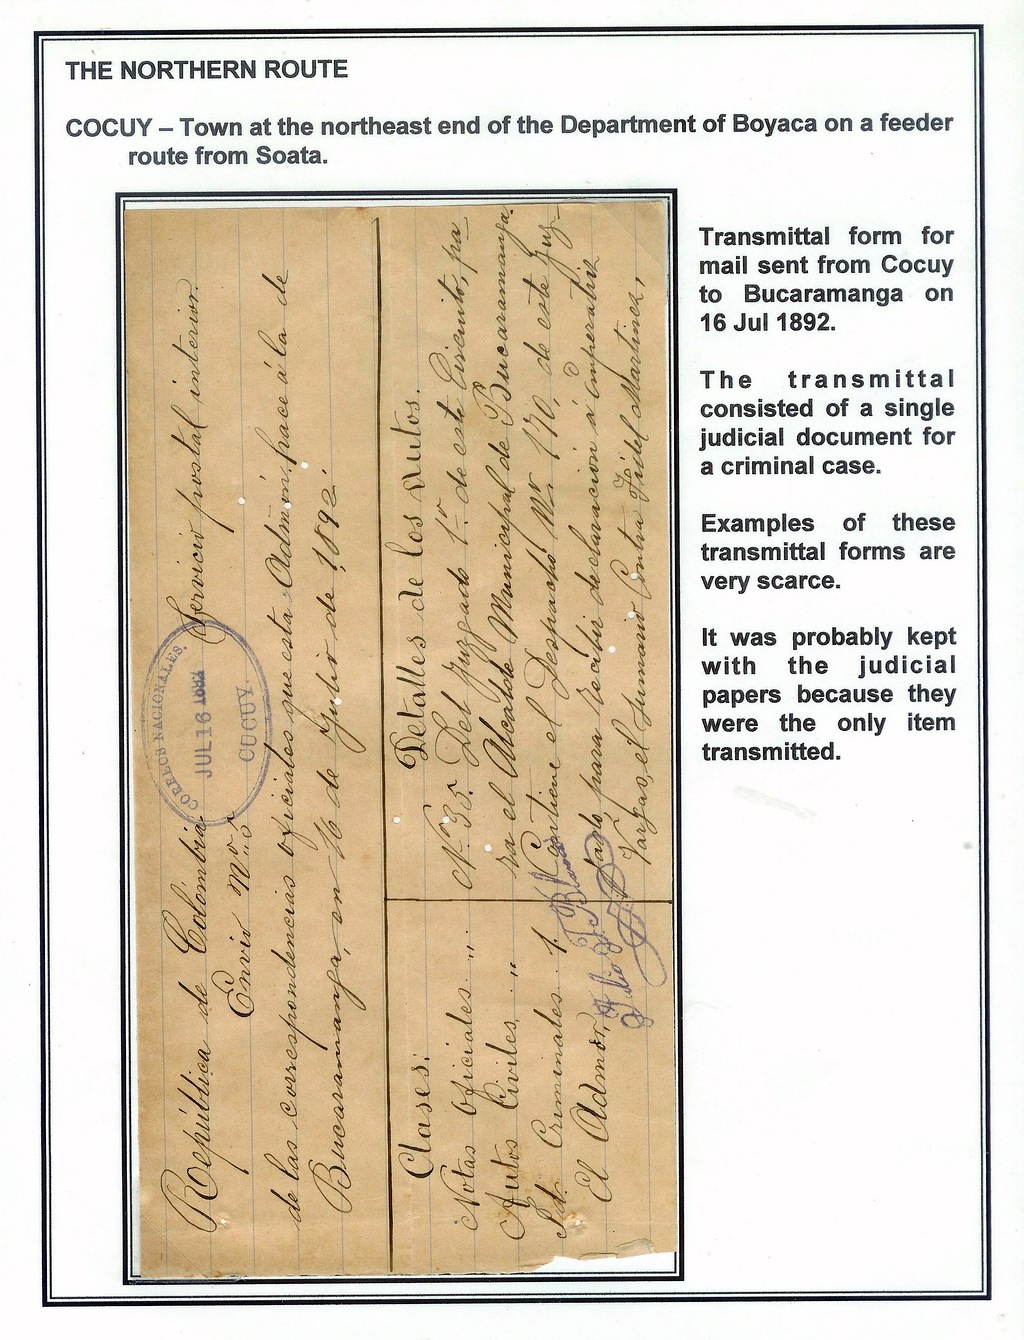 THE NORTHERN ROUTE
COCUY – Town at the northeast end of the Department of Boyaca on a feeder
route from Soata.
República de Colombia. Servicio postal interior.
Envío Nro
de las correspondencias oficiales que esta Admón. hace á la de
Bucaramanga, en 16 de Julio de 1892.
CORREOS NACIONALES.
JUL 16 1892
COCUY.
Clases:
Notas oficiales „
Autos Civiles „
Id. Criminales 1.
El Admor,
Detalles de los Autos.
Del Juzgado 1º de este Circuito, pa
ra el Alcalde Municipal de Bucaramanga.
Contiene el Despacho Nro 170, de este Juz-
gado para recibir declaración á
Vargas, el sumario contra Fidel Martínez,
Transmittal form for
mail sent from Cocuy
to Bucaramanga on
16 Jul 1892.
The transmittal
consisted of a single
judicial document for
a criminal case.
Examples of these
transmittal forms are
very scarce.
It was probably kept
with the judicial
papers because they
were the only item
transmitted.